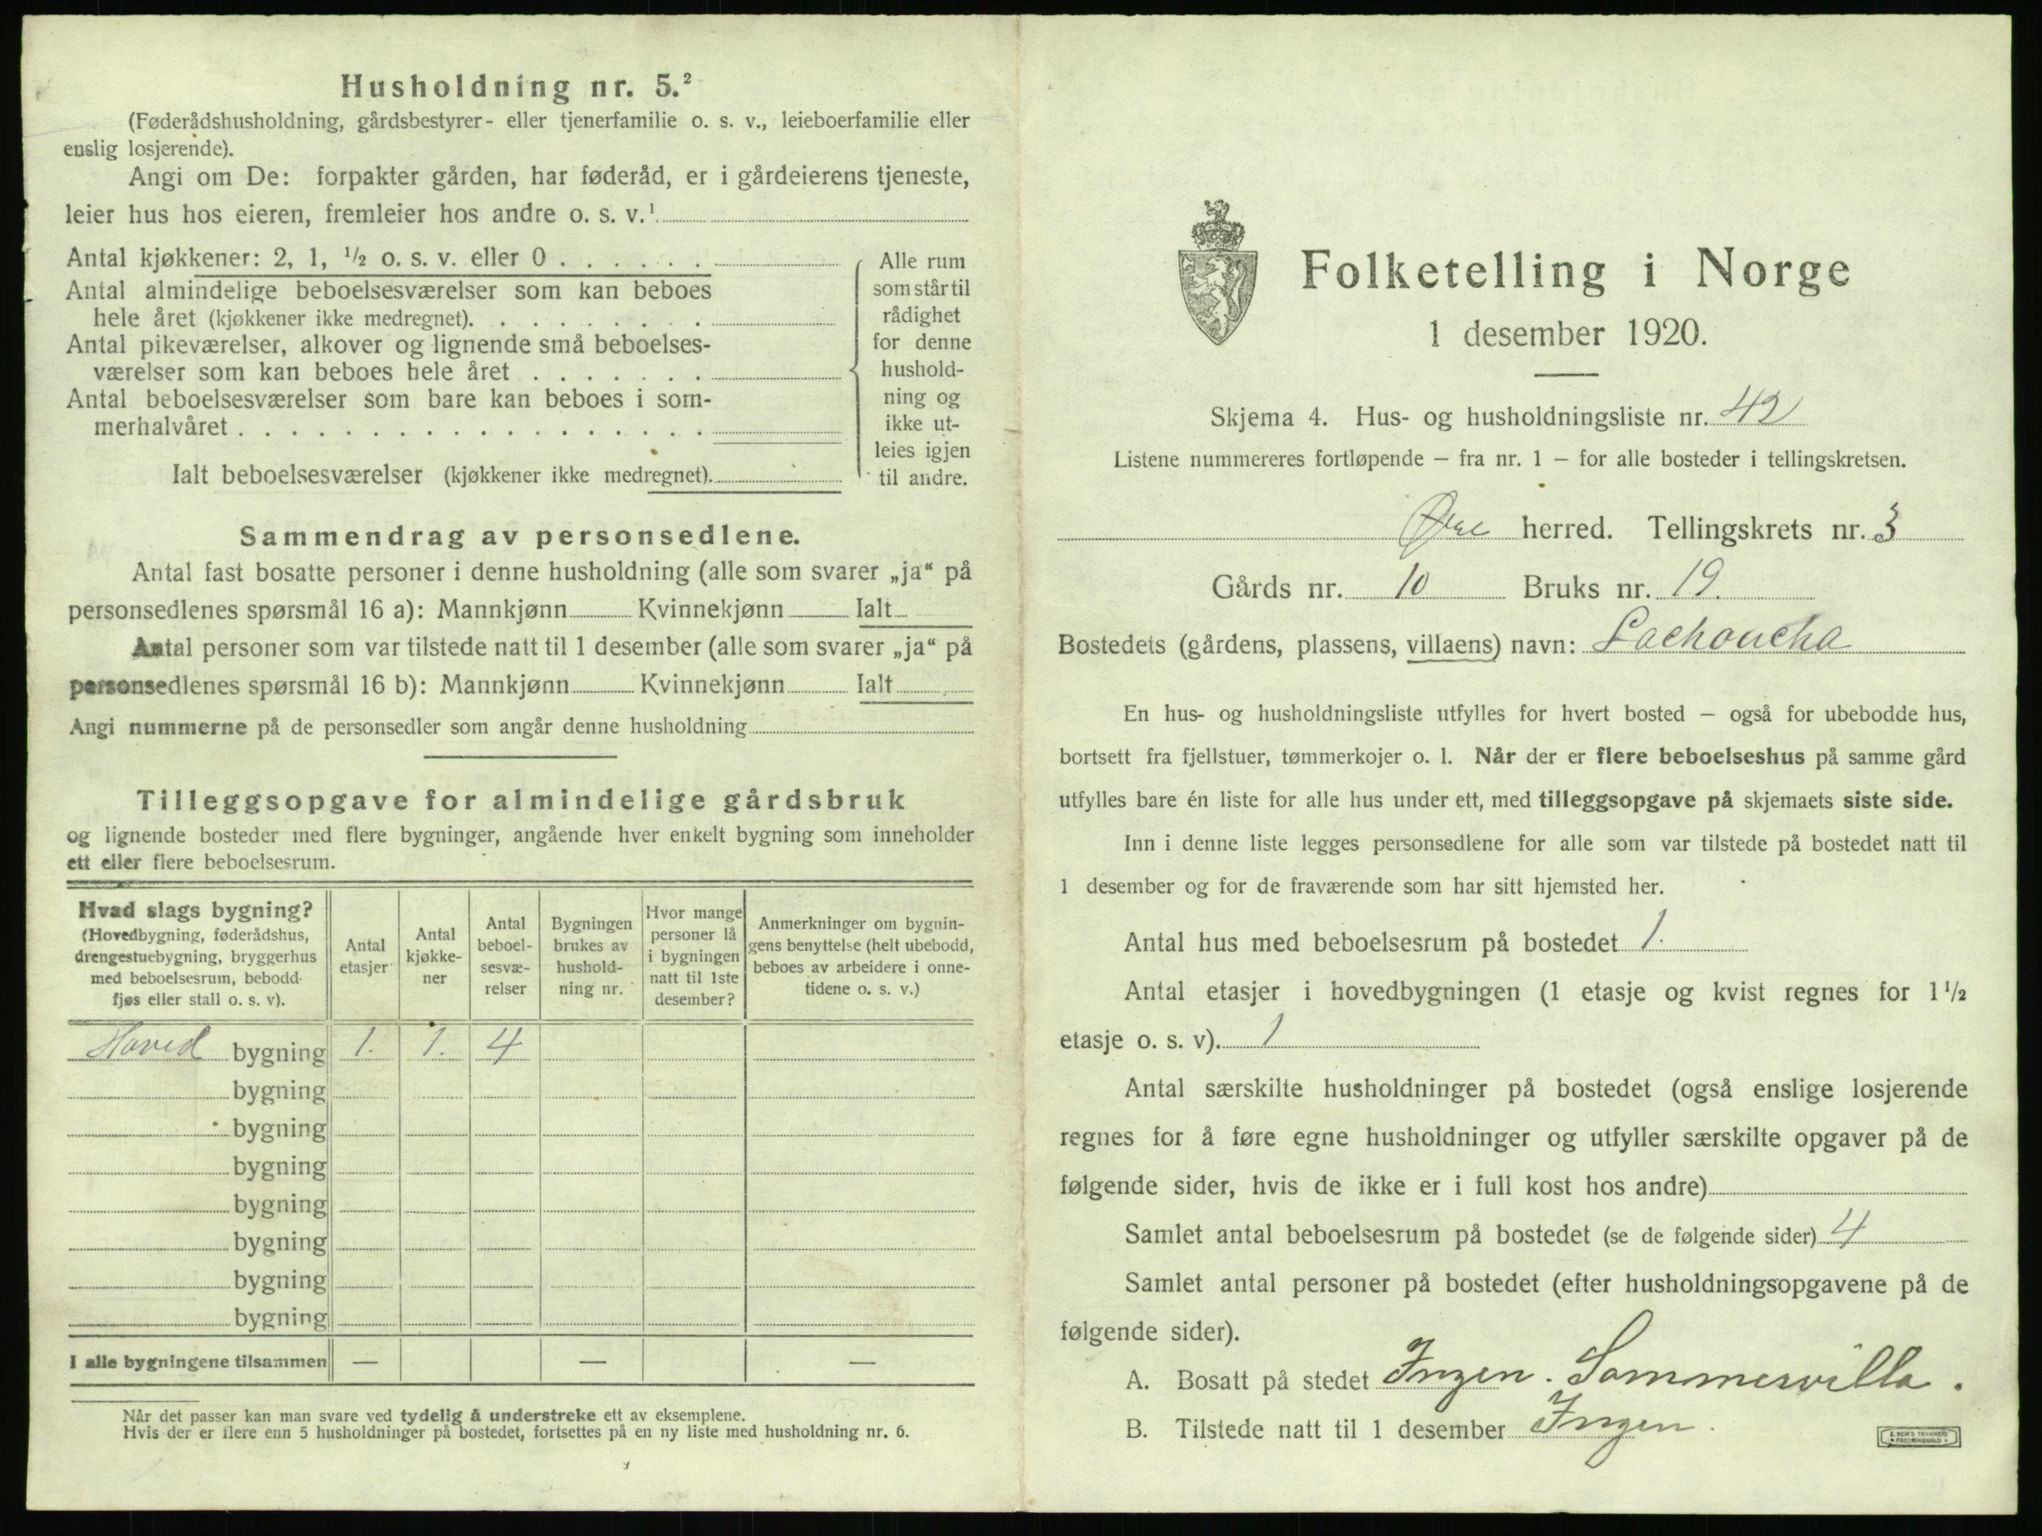 Husholdning nr. 5.²
(Føderådshusholdning, gårdsbestyrer- eller tjenerfamilie o. s. v., leieboerfamilie eller
enslig losjerende).
Angi om De: forpakter gården, har føderåd, er i gårdeierens tjeneste,
leier hus hos eieren, fremleier hos andre o. s. v.¹
Antal kjøkkener: 2, 1, ½ o. s. v. eller 0 . . . . . .
Antal almindelige beboelsesværelser som kan beboes
hele året (kjøkkener ikke medregnet). . . . . . . . .
Antal pikeværelser, alkover og lignende små beboelses-
værelser som kan beboes hele året . . . . . . .
Antal beboelsesværelser som bare kan beboes i som-
merhalvåret . . . . . . . . . . . . . . . . . .
Ialt beboelsesværelser (kjøkkener ikke medregnet).
Alle rum
som står til
rådighet
for denne
hushold-
ning og
ikke ut-
leies igjen
til andre.
Sammendrag av personsedlene.
Antal fast bosatte personer i denne husholdning (alle som svarer „ja“ på
personsedlenes spørsmål 16 a): Mannkjønn Kvinnekjønn Ialt
Antal personer som var tilstede natt til 1 desember (alle som svarer „ja“ på
personsedlenes spørsmål 16 b): Mannkjønn Kvinnekjønn Ialt
Angi nummerne på de personsedler som angår denne husholdning
Tilleggsopgave for almindelige gårdsbruk
og lignende bosteder med flere bygninger, angående hver enkelt bygning som inneholder
ett eller flere beboelsesrum.
Hvad slags bygning?
(Hovedbygning, føderådshus,
drengestuebygning, bryggerhus
med beboelsesrum, bebodd
fjøs eller stall o. s. v).
Antal
etasjer
Antal
kjøkke-
ner
Antal
beboel-
sesvæ-
relser
Bygningen
brukes av
hushold-
ning nr.
Hvor mange
personer lå
i bygningen
natt til 1ste
desember?
Anmerkninger om bygnin-
gens benyttelse (helt ubebodd,
beboes av arbeidere i onne-
tidene o. s. v.)
Hoved bygning 1. 1. 4
bygning
bygning
bygning
bygning
bygning
bygning
bygning
I alle bygningene tilsammen — — —
Når det passer kan man svare ved tydelig å understreke ett av eksemplene.
Hvis der er flere enn 5 husholdninger på bostedet, fortsettes på en ny liste med husholdning nr. 6.
Folketelling i Norge
1 desember 1920.
Skjema 4. Hus- og husholdningsliste nr. 42
Listene nummereres fortløpende – fra nr. 1 – for alle bosteder i tellingskretsen.
Øre herred. Tellingskrets nr. 3
Gårds nr. 10 Bruks nr. 19.
Bostedets (gårdens, plassens, villaens) navn: Lachoucha
En hus- og husholdningsliste utfylles for hvert bosted – også for ubebodde hus,
bortsett fra fjellstuer, tømmerkojer o. l. Når der er flere beboelseshus på samme gård
utfylles bare én liste for alle hus under ett, med tilleggsopgave på skjemaets siste side.
Inn i denne liste legges personsedlene for alle som var tilstede på bostedet natt til
1 desember og for de fraværende som har sitt hjemsted her.
Antal hus med beboelsesrum på bostedet 1.
Antal etasjer i hovedbygningen (1 etasje og kvist regnes for 1½
etasje o. s. v). 1
Antal særskilte husholdninger på bostedet (også enslige losjerende
regnes for å føre egne husholdninger og utfyller særskilte opgaver på de
følgende sider, hvis de ikke er i full kost hos andre)
Samlet antal beboelsesrum på bostedet (se de følgende sider) 4
Samlet antal personer på bostedet (efter husholdningsopgavene på de
følgende sider).
A. Bosatt på stedet Ingen. Sommervilla.
B. Tilstede natt til 1 desember Ingen.